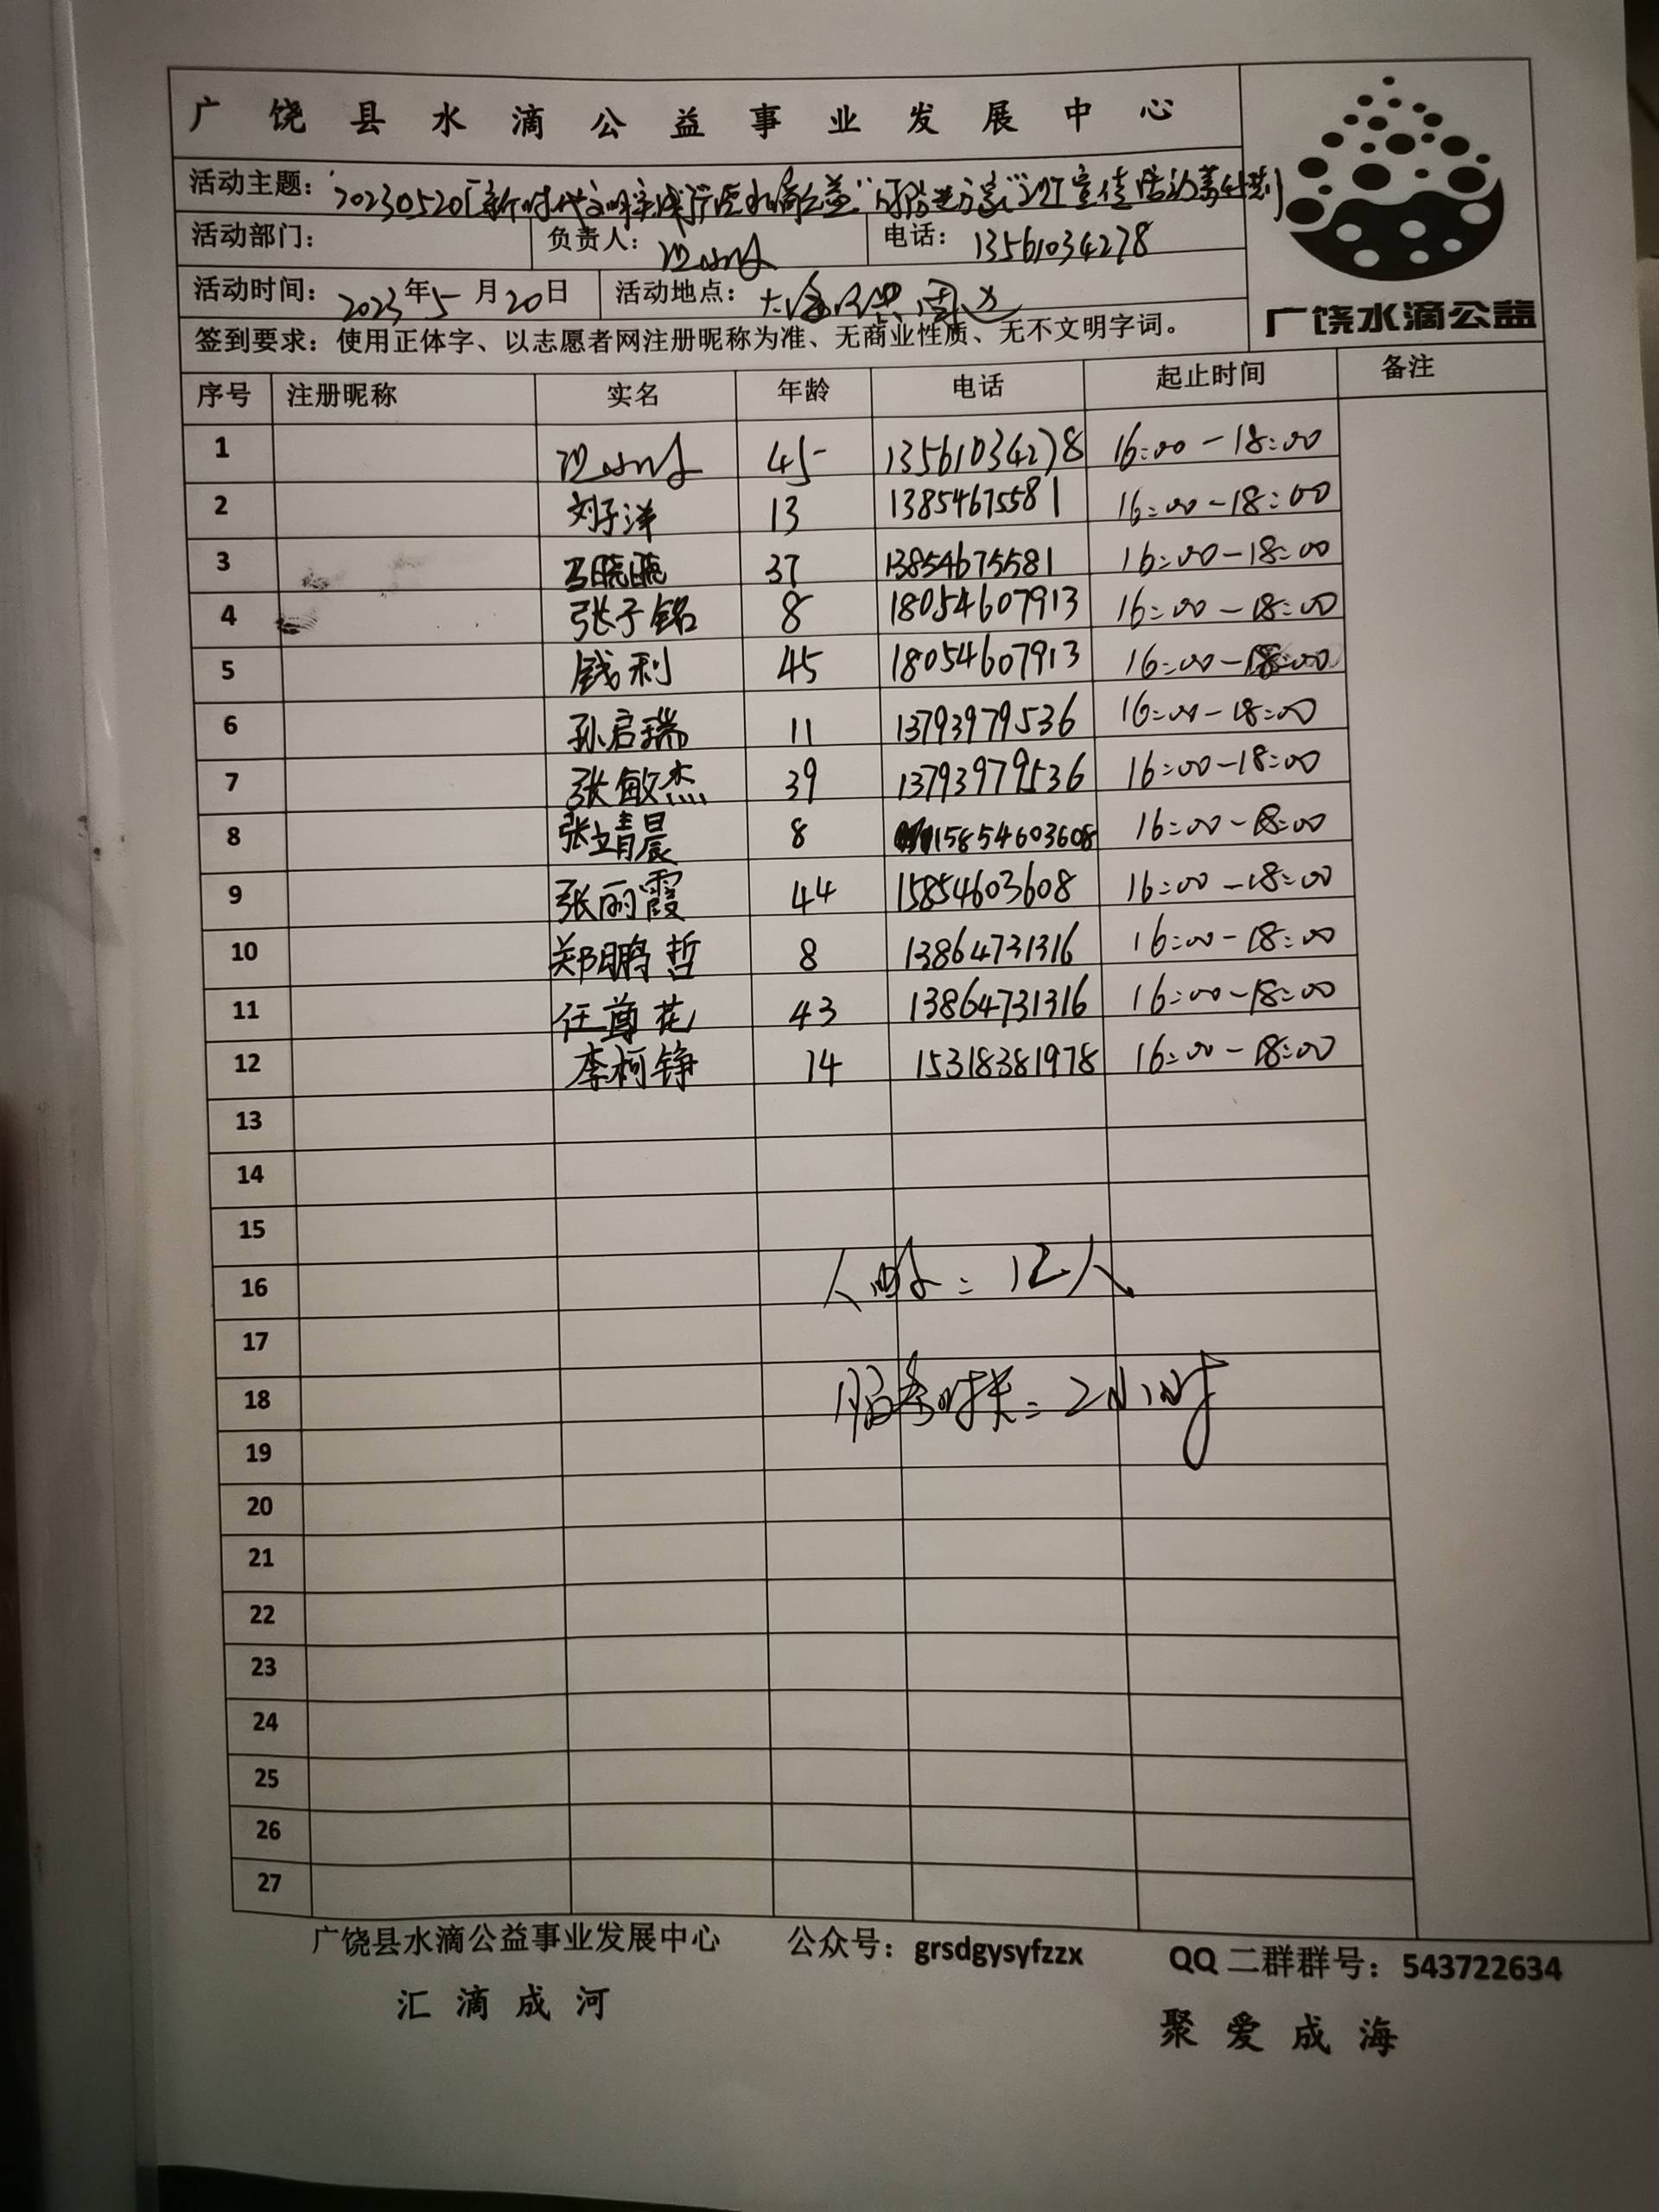 广饶县水滴公益事业发展中心
活动主题：20230520[新时代文明实践]广饶水滴公益
活动部门： 负责人： 电话：13561034278
活动时间：2023年5月20日 活动地点：周边
签到要求：使用正体字、以志愿者网注册昵称为准、无商业性质、无不文明字词。
广饶水滴公益
序号 注册昵称 实名 年龄 电话 起止时间 备注
1 45 13561034278 16:00-18:00
2 刘子洋 13 13854675581 16:00-18:00
3 37 13854675581 16:00-18:00
4 张子铭 8 18054607913 16:00-18:00
5 钱利 45 18054607913 16:00-18:00
6 孙启瑞 11 13793979536 16:00-18:00
7 张敏杰 39 13793979536 16:00-18:00
8 张靖晨 8 15854603608 16:00-18:00
9 张丽霞 44 15854603608 16:00-18:00
10 郑鹏哲 8 13864731316 16:00-18:00
11 任尊花 43 13864731316 16:00-18:00
12 李柯铮 14 15318381978 16:00-18:00
13
14
15
16 人数：12人
17
18 服务时长：2小时
19
20
21
22
23
24
25
26
27
广饶县水滴公益事业发展中心 公众号：grsdgysyfzzx QQ二群群号：543722634
汇滴成河 聚爱成海